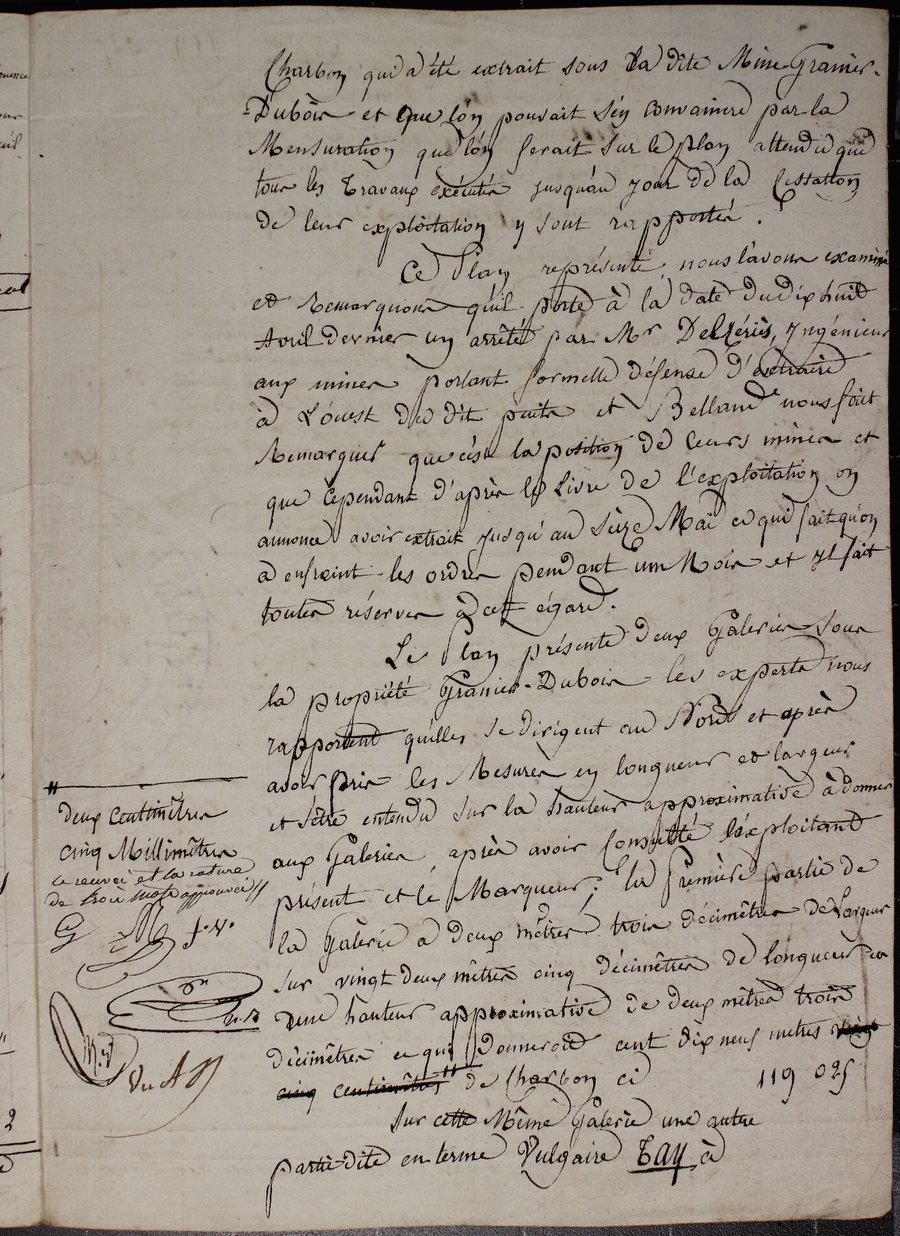 Charbon qui a été extrait sous la dite Mine Granier-
Dubois et que l'on pouvait s'en convaincre par la
Mensuration que l'on ferait sur le plan attendu que
tous les Travaux exécutés jusqu'au jour de la Cessation
de leur exploitation y sont rapportés.
Ce Plan représenté, nous l'avons examiné
et Remarquons qu'il porte à la date du dix huit
Avril dernier un arrêté par Mr Delséries, Ingénieur
aux mines portant formelle défense d'extraire
à L'ouest du dit puits et Belland nous fait
Remarquer que c'est la position de leurs mines et
que cependant d'après le Livre de l'exploitation on
annonce avoir extrait jusqu'au seize Mai ce qui fait qu'on
a enfreint les ordres pendant un Mois et il fait
toutes réserves à cet égard.
Le Plan présente deux Galeries sous
la propriété Granier-Dubois les experts nous
rapportent qu'elles se dirigent au Nord et après
avoir pris les Mesures en longueur et largeur
et s'être entendu sur la hauteur approximative à donner
aux Galeries, après avoir Consulté l'exploitant
présent et le Marqueur; la Première partie de
la Galerie a deux mètres trois décimètres de Largeur
sur vingt deux mètres cinq décimètres de longueur et
une hauteur approximative de deux mètres trois
décimètres ce qui Donneroit cent dix neuf metres vingt
cinq centimètres " de Charbon ci 119 025
Sur cette Même Galerie une autre
partie dite en terme Vulgaire Tay à
"
deux Centimètres
cinq Millimètres
ce renvoi et la rature
de trois mots approuvés //
G J.N.
M.V